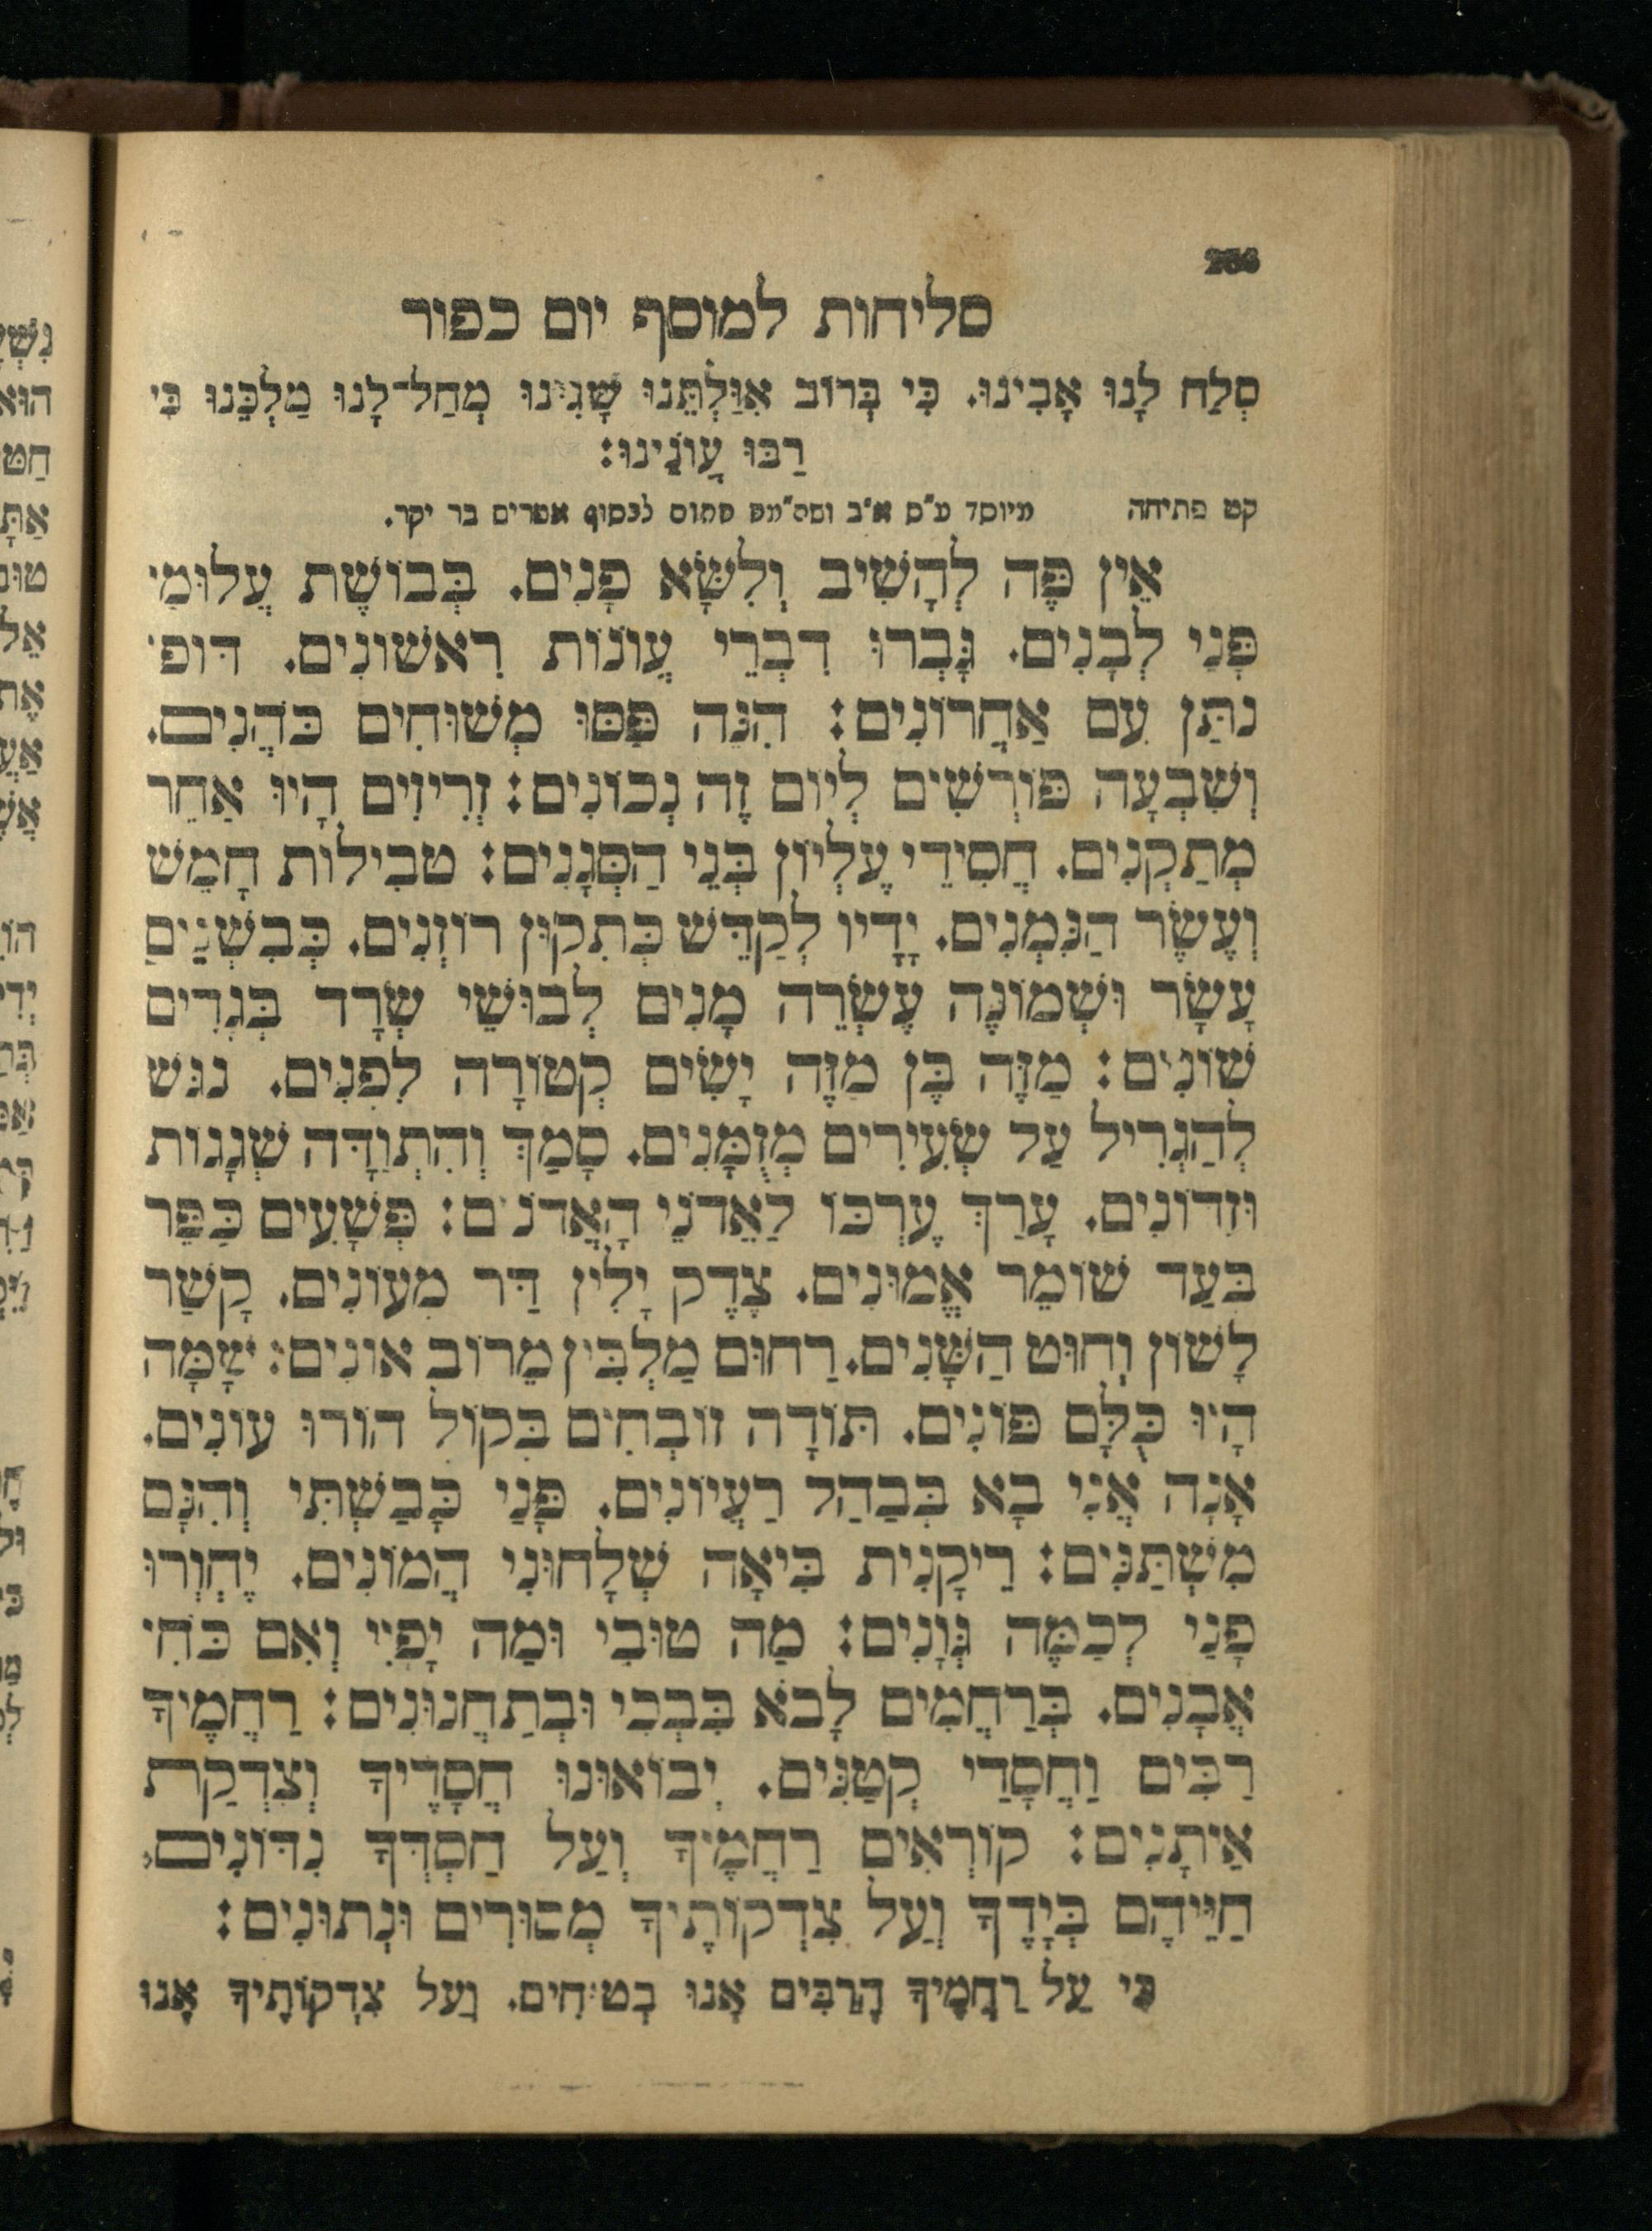 סליחות למוסף יום כפור
סְלַח לָנוּ אָבִינוּ. כִּי בְּרוֹב אִוַּלְתֵּנוּ שָׁגִינוּ מְחַל־לָנוּ מַלְכֵּנוּ כִּי
רַבּוּ עֲוֹנֵינוּ:
קט פתיחה מיוסד ע"פ א"ב וסס"מש סתום לבסוף אפרים בר יקר.
אֵין פֶּה לְהָשִׁיב וְלִשָּׂא פָנִים. בְּבוֹשֶׁת עֲלוּמִי
פָּנַי לְבָנִים. גָּבְרוּ דִבְרֵי עֲוֹנוֹת רִאשׁוֹנִים. דּוֹפִי
נתַּן עִם אַחֲרוֹנִים: הִנֵּה פַּסּוּ מְשׁוּחִים כֹּהֲנִים.
וְשִׁבְעָה פּוֹרְשִׁים לְיוֹם זֶה נְכוֹנִים: זְרִיזִים הָיוּ אַחֵר
מְתַקְנִים. חֲסִידֵי עֶלְיוֹן בְּנֵי הַסְּגָנִים: טבִילוֹת חָמֵשׁ
וְעֶשֶׂר הַנִּמְנִים. יָדָיו לְקַדֵּשׁ כְּתִקּוּן רוֹזְנִים. כְּבִשְׁנַיִם
עָשָׂר וּשְׁמוֹנֶה עֶשְׂרֵה מָנִים לְבוּשֵׁי שְׂרָד בְּגָדִים
שׁוֹנִים: מַזֶּה בֶּן מַזֶּה יָשִׂים קְטוֹרָה לִפְנִים. נגַּשׁ
לְהַגְרִיל עַל שְׂעִירִים מְזֻמָּנִים. סָמַךְ וְהִתְוַדָּה שְׁגָגוֹת
וּזְדוֹנִים. עָרַךְ עֶרְכּוֹ לַאֲדֹנֵי הָאֲדֹנִים: פְּשָׁעִים כִּפֵּר
בְּעַד שׁוֹמֵר אֱמוּנִים. צֶדֶק יָלִין דַּר מְעוֹנִים. קָשַׁר
לָשׁוֹן וְחוּט הַשָּׁנִים. רַחוּם מַלְבִּין מֵרוֹב אוֹנִים: שָׁמָּה
הָיוּ כֻּלָּם פּוֹנִים. תּוֹדָה זוֹבְחִים בְּקוֹל הוֹדוּ עוֹנִים.
אָנָה אֲנִי בָא בְּבַהַל רַעֲיוֹנִים. פָּנַי כָּבַשְׁתִּי וְהִנָּם
מִשְׁתַּנִּים: רֵיקָנִית בִּיאָה שְׁלָחוּנִי הֲמוֹנִים. יֶחְוְרוּ
פָּנַי לְכַמָּה גְּוָנִים: מַה טוּבִי וּמַה יָפְיִי וְאִם כֹּחִי
אֲבָנִים. בְּרַחֲמִים לָבֹא בִּבְכִי וּבְתַחֲנוּנִים: רַחֲמֶיךָ
רַבִּים וַחֲסָדַי קְטַנִּים. יְבוֹאוּנוּ חֲסָדֶיךָ וְצִדְקַת
אֵיתָנִים: קוֹרְאִים רַחֲמֶיךָ וְעַל חַסְדְּךָ נִדּוֹנִים.
חַיֵּיהֶם בְּיָדֶךָ וְעַל צִדְקוֹתֶיךָ מְסוּרִים וּנְתוּנִים:
כִּי עַל רַחֲמֶיךָ הָרַבִּים אָנוּ בְטוּחִים. וְעַל צִדְקוֹתֶיךָ אָנוּ